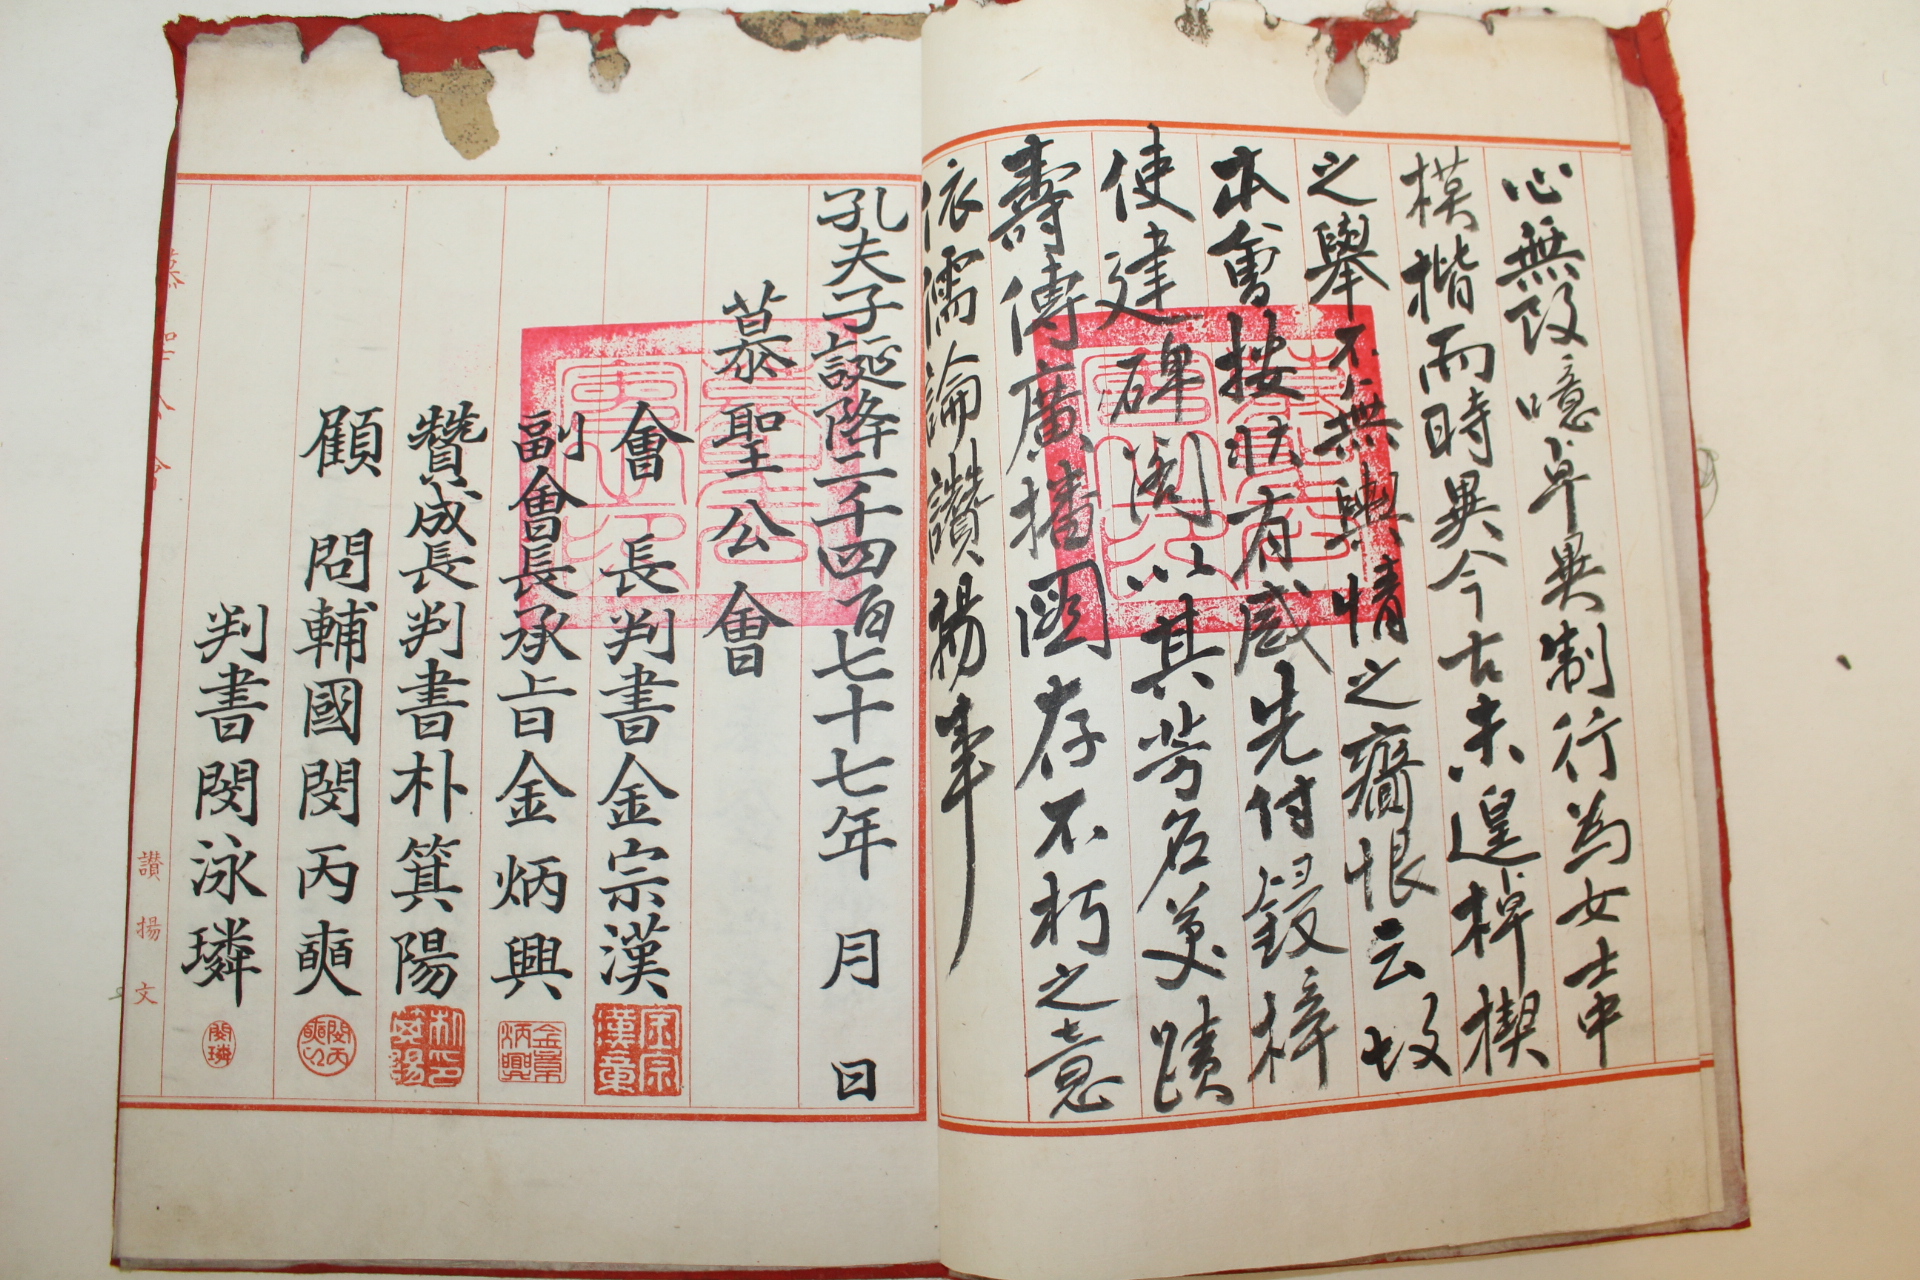 心無改噫卓異制行為女士中
模楷而時異今古未遑棹楔
之擧不無輿情之齎恨云故
本會接狀有感先付鋟梓
使建碑閣以其芳名美蹟
壽傳廣播圖存不朽之意
依儒論讚揚事
孔夫子誕降二千四百七十七年 月 日
慕聖公會
會長判書金宗漢
副會長承旨金炳興
贊成長判書朴箕陽
顧問輔國閔丙奭
判書閔泳璘
讃揚文